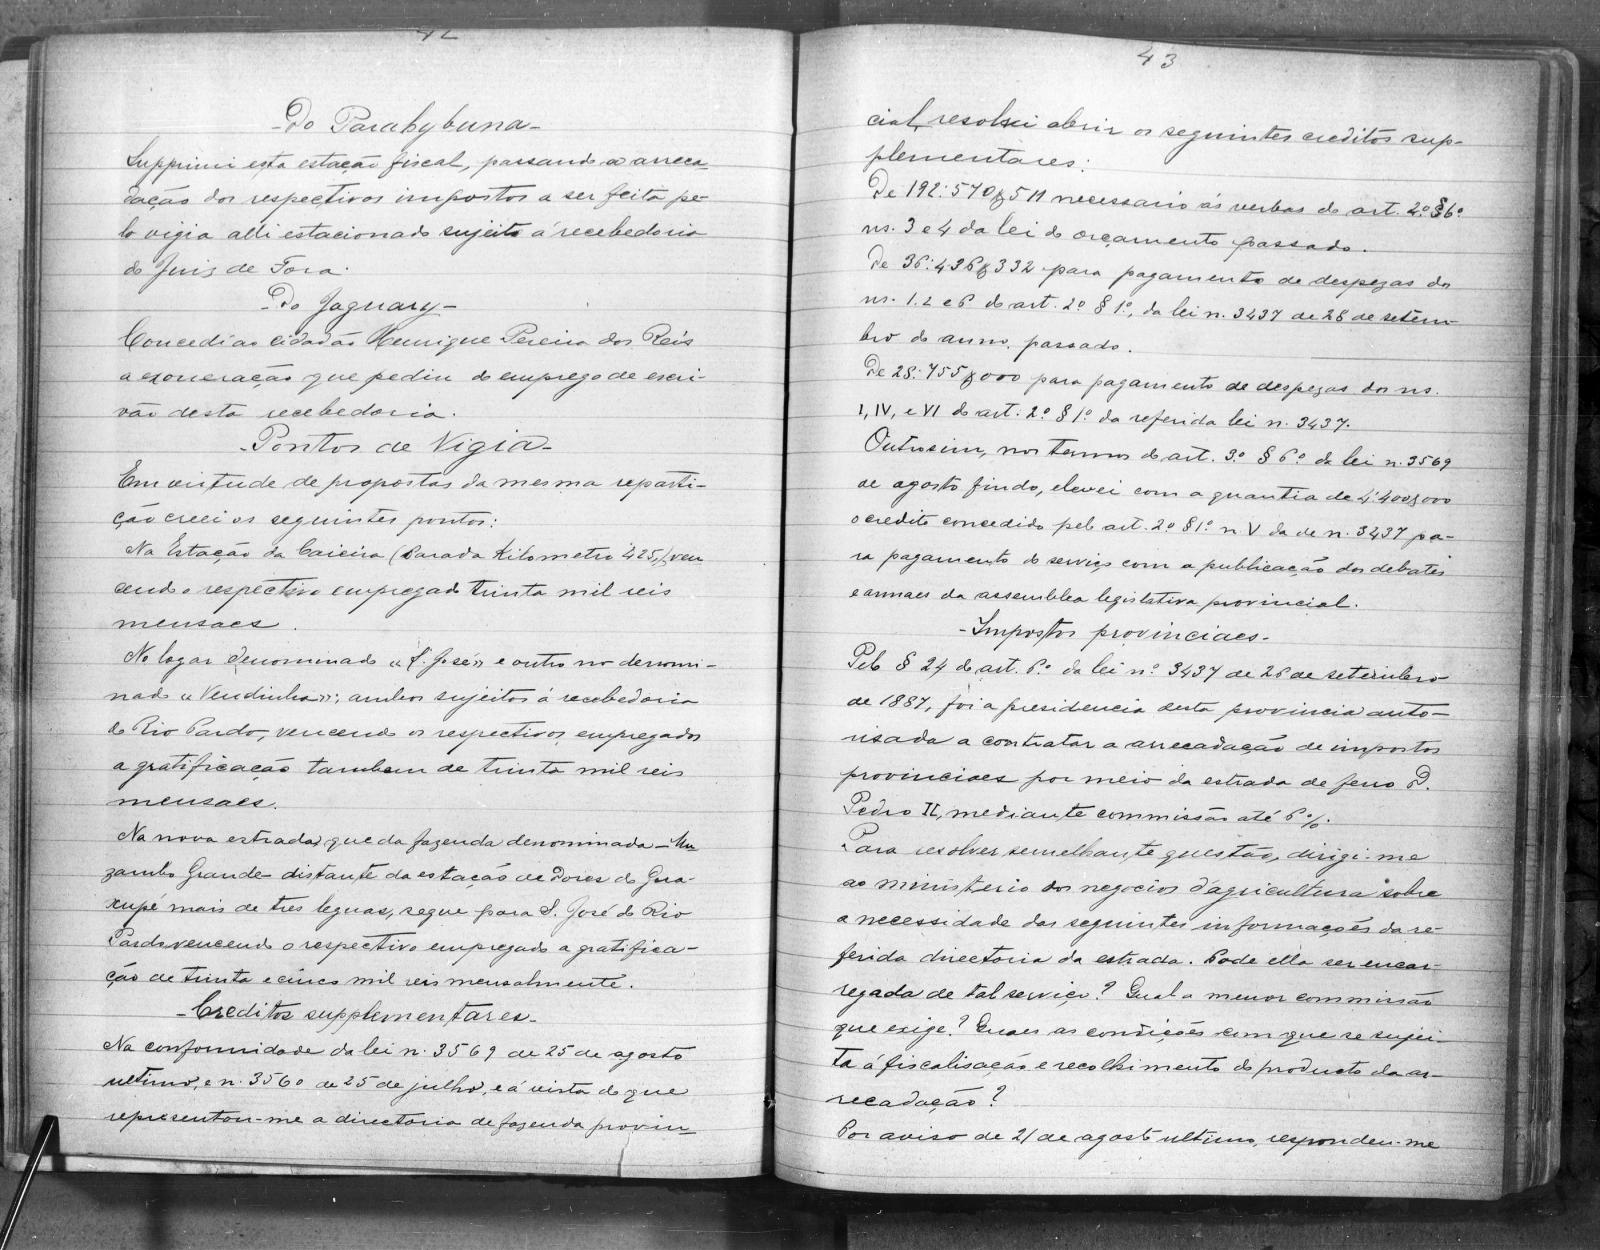 42
-Do Parahybuna-
Supprimi esta estação fiscal, passando a arreca-
dação dos respectivos impostos a ser feita pe-
lo vigia alli estacionado sujeito á recebedoria
do Juiz de Fora.
-Do Jaguary-
Concedi ao cidadão Henrique Pereira dos Reis
a exoneração que pediu do emprego de escri-
vão desta recebedoria.
-Pontos de Vigia-
Em virtude de propostas da mesma reparti-
ção creei os seguintes pontos:
Na Estação da Caieira (Parada Kilometro 425,) ven
cendo o respectivo empregado trinta mil reis
mensaes.
No logar denominado "S. José" e outro no denomi-
nado "Vendinha"; ambos sujeitos á recebedoria
do Rio Pardo, vencendo os respectivos empregados
a gratificação tambem de trinta mil reis
mensaes.
Na nova estrada, que da fazenda denominada - Mu
zambo Grande - distante da estação de Dores do Gua-
xupé mais de tres leguas, segue para S. José do Rio
Pardo vencendo o respectivo empregado a gratifica-
ção de trinta e cinco mil reis mensalmente.
-Creditos supplementares-
Na conformidade da lei n. 3569 de 25 de agosto
ultimo, e n. 3560 de 25 de julho, e á vista do que
representou-me a directoria de fazenda provin-
43
cial, resolvi abrir os seguintes creditos sup-
plementares:
De 192:570$511 necessario ás verbas do art. 2.º § 6º
ns. 3 e 4 da lei do orçamento passado.
De 36:436$332 para pagamento de despezas dos
ns. 1. 2 e 6 do art. 2º § 1º, da lei n. 3437 de 28 de setem-
bro do anno, passado.
De 28:755$000 para pagamento de despezas dos ns.
I, IV, e VI do art. 2º § 1º da referida lei n. 3437.
Outrosim, nos termos do art. 3º § 6º da lei n. 3569
de agosto findo, elevei com a quantia de 4:400$000
o credito concedido pelo art. 2º § 1º n V da de n. 3437 pa-
ra pagamento do serviço com a publicação dos debates
e annaes da assemblea legislativa provincial.
-Impostos provinciaes-
Pelo § 24 do art. 6º da lei nº 3437 de 26 de setembro
de 1887, foi a presidencia desta provincia auto-
risada a contratar a arrecadação de impostos
provinciaes por meio da estrada de ferro D.
Pedro II, mediante commissão até 6%.
Para resolver semelhante questão, dirigi-me
ao ministerio dos negocios d'agricultura sobre
a necessidade das seguintes informações da re-
ferida directoria da estrada. Pode ella ser encar-
regada de tal serviço? Qual a menor commissão
que exige? Quaes as condições com que se sujei-
ta á fiscalisação e recolhimento do producto da ar-
recadação?
Por aviso de 21 de agosto ultimo, respondeu-me